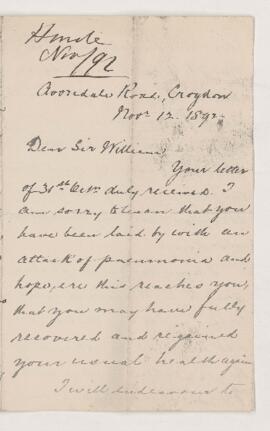 Hincle
Nov/92
Avondale Road, Croydon
Novr 12. 1892
Dear Sir William
Your letter
of 31st Octr. duly received. I
am sorry to learn that you
have been laid by with an
attack of pneumonia and
hope, ere this reaches you,
that you may have fully
recovered and regained
your usual health again
I will endeavour to